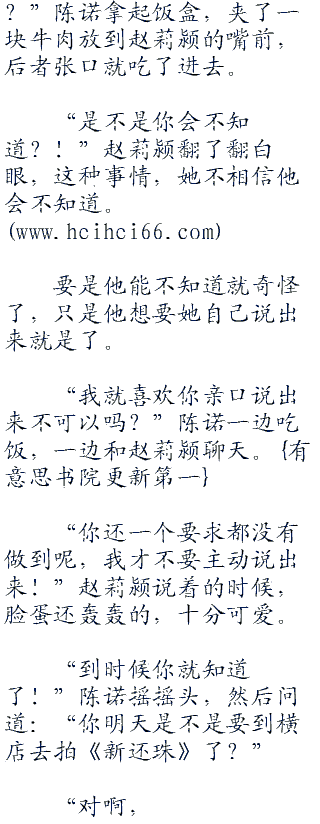 ？”陈诺拿起饭盒，夹了一
块牛肉放到赵莉颖的嘴前，
后者张口就吃了进去。
“是不是你会不知
道？！”赵莉颖翻了翻白
眼，这种事情，她不相信他
会不知道。
(www.hcihci66.com)
要是他能不知道就奇怪
了，只是他想要她自己说出
来就是了。
“我就喜欢你亲口说出
来不可以吗？”陈诺一边吃
饭，一边和赵莉颖聊天。{有
意思书院更新第一}
“你还一个要求都没有
做到呢，我才不要主动说出
来！”赵莉颖说着的时候，
脸蛋还轰轰的，十分可爱。
“到时候你就知道
了！”陈诺摇摇头，然后问
道：“你明天是不是要到横
店去拍《新还珠》了？”
“对啊，